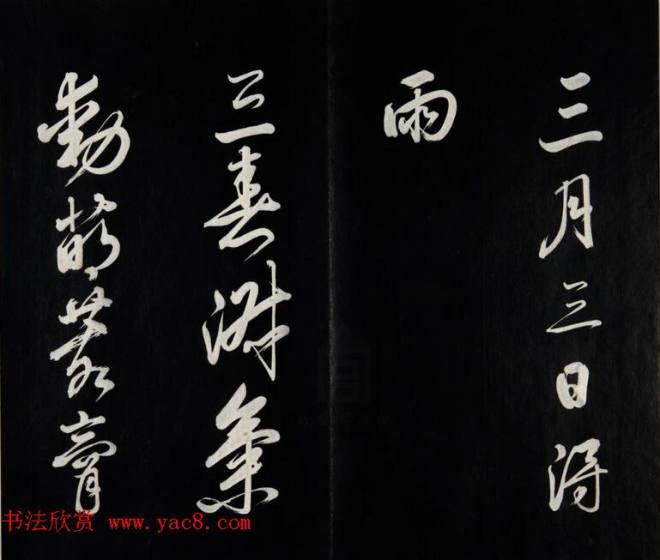 三月三日得
雨
三春淑氣
動萌荄膏
书法欣赏 www.yac8.com